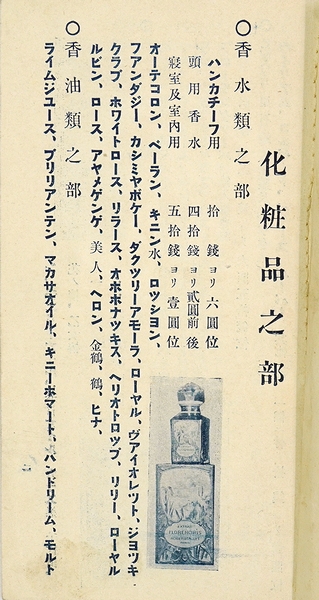 化粧品之部
〇香水類之部
ハンカチーフ用 拾錢ヨリ六圓位
頭用香水 四拾錢ヨリ貳圓前後
寢室及室內用 五拾錢ヨリ壹圓位
オーデコロン、ベーラン、キニン水、ロッション、
フアンダジー、カシミヤボケー、ダクツリーアモーラ、ローヤル、ヴアイオレツト、ジヨツキ
クラブ、ホワイトロース、リラース、オポポナツキス、ヘリオトロツプ、リリー、ローヤル
ルビン、ロース、アヤメゲンゲ、美人、ヘロン、金鶴、鶴、ヒナ、
〇香油類之部
ライムジユース、ブリリアンテン、マカサオイル、キニーポマート、バンドリーム、モルト
FLORAMORIS